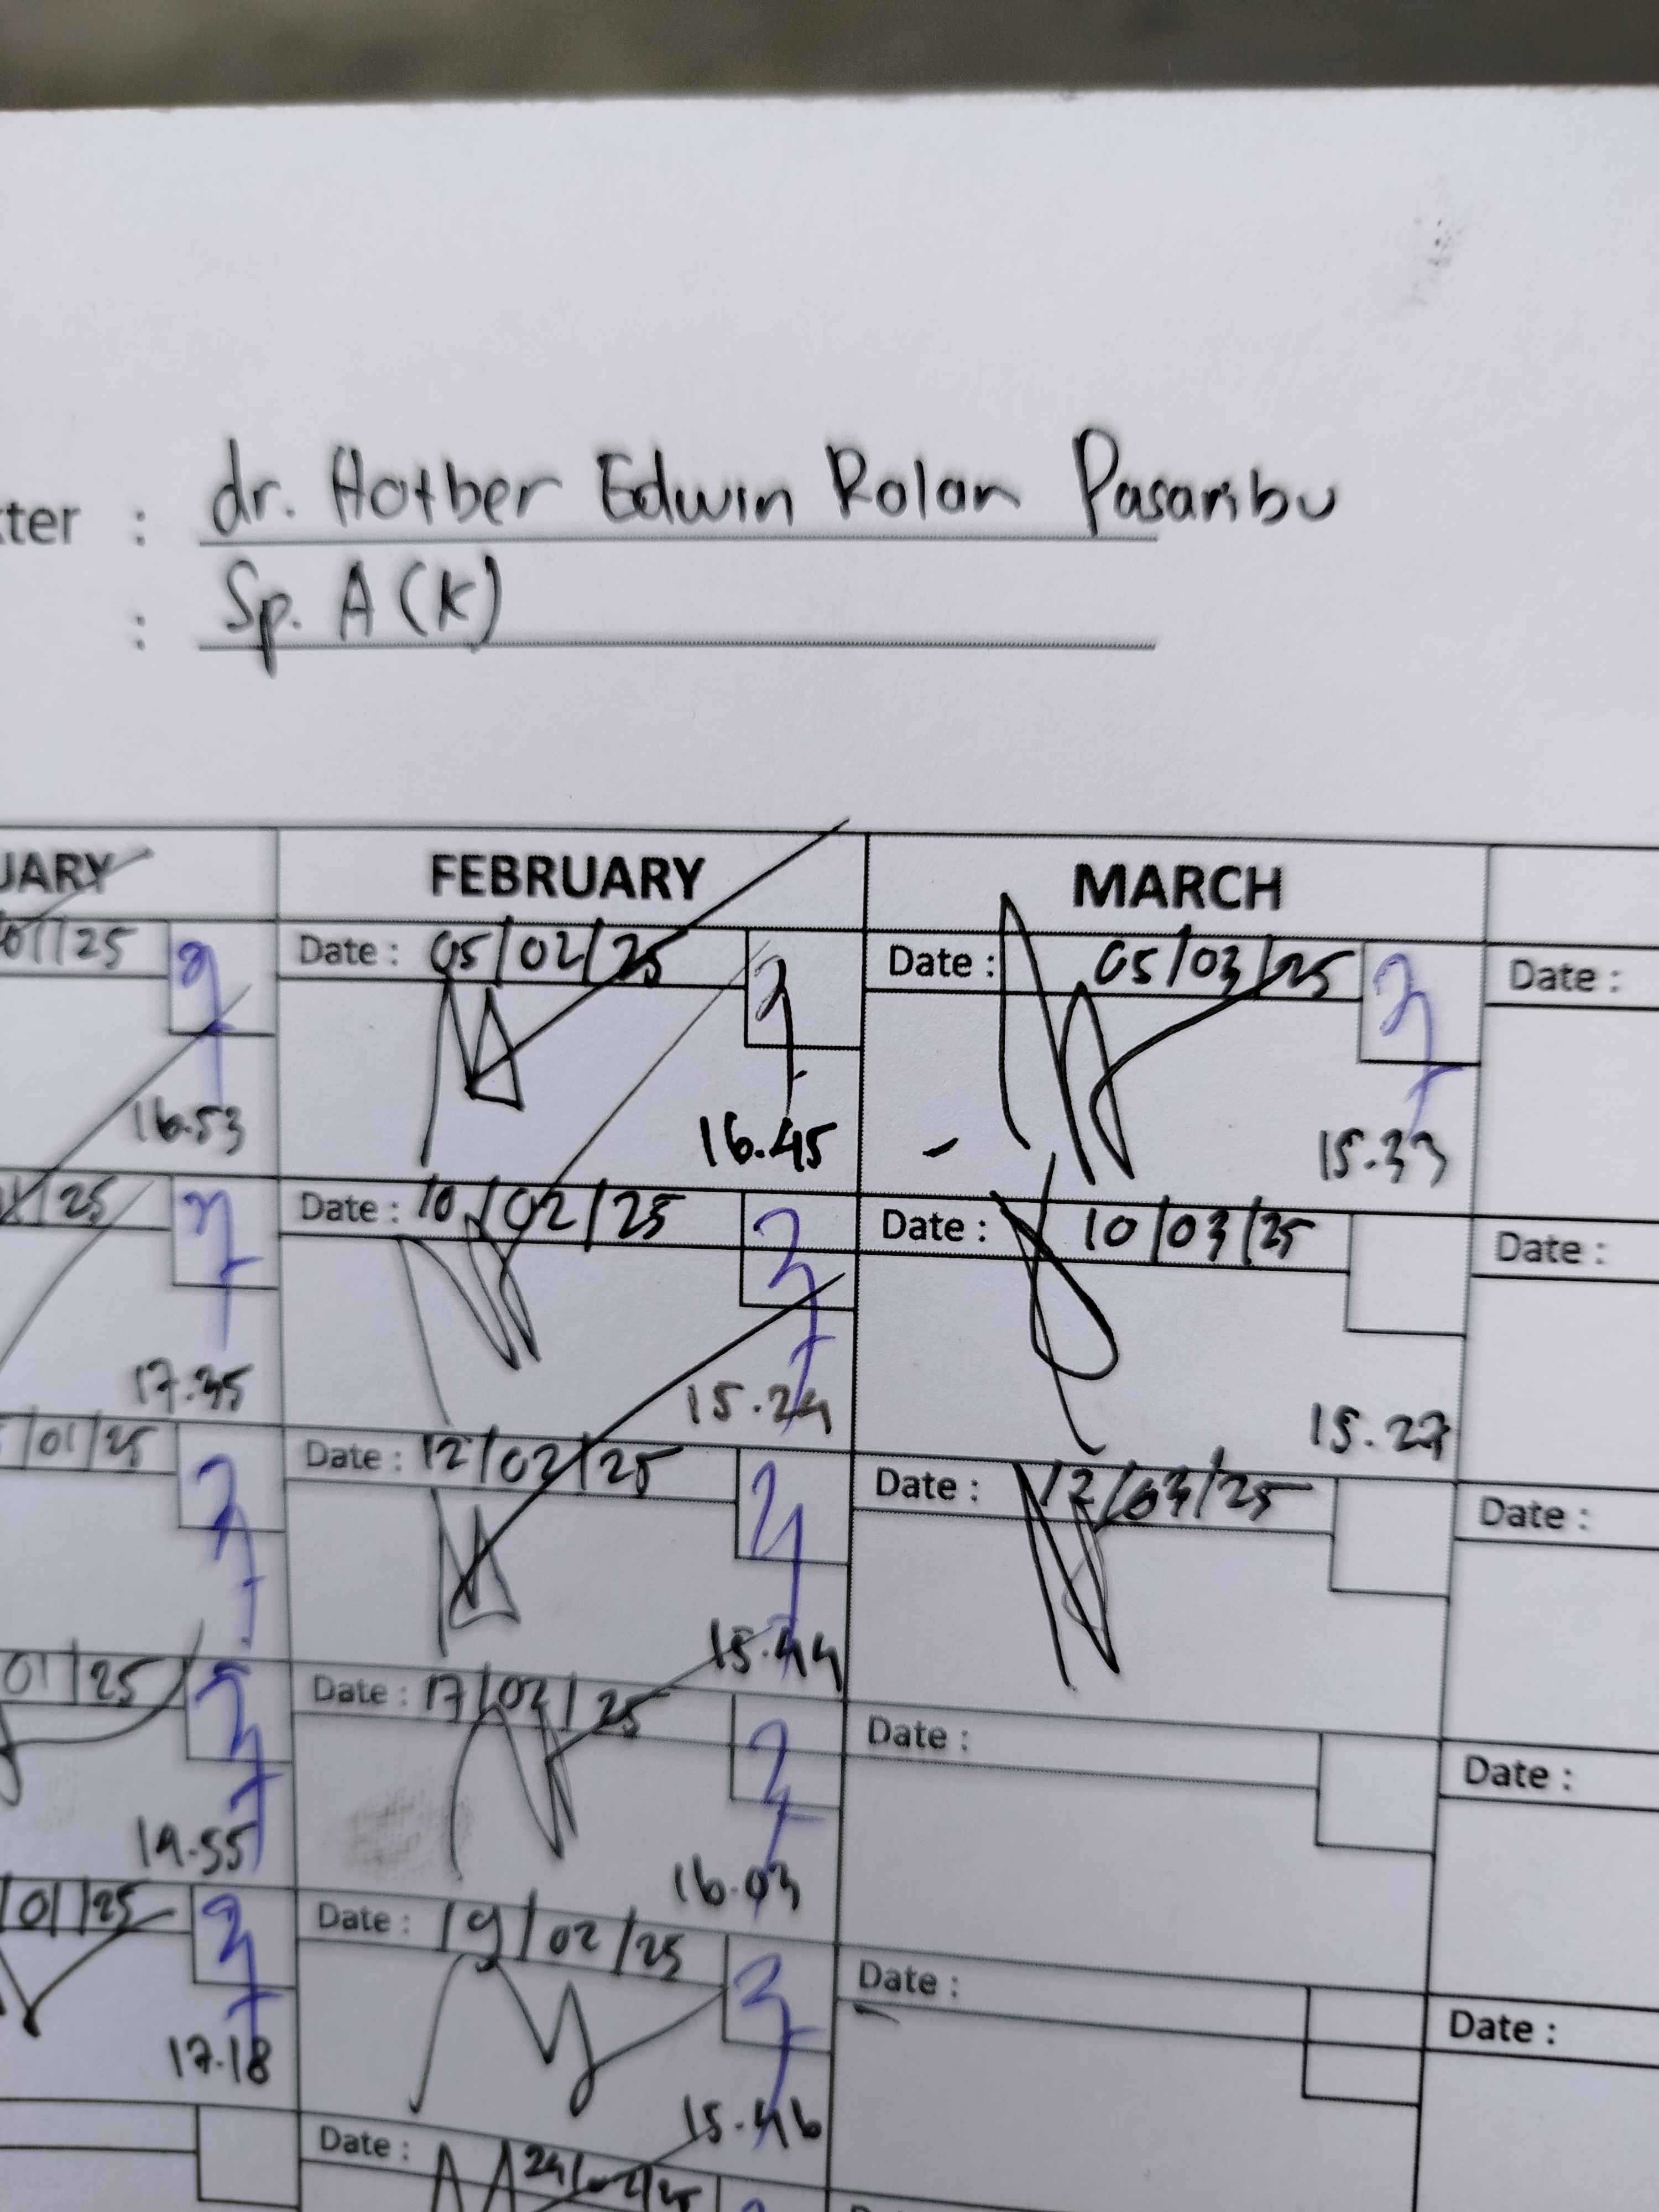 ter : dr. Hotber Edwin Rolan Pasaribu
: Sp. A (K)
UARY FEBRUARY MARCH
01/25 Date : 05/02/25 Date : 05/03/25 Date :
16.53 16.45 15.33
/25 Date : 10/02/25 Date : 10/03/25 Date :
17.35 15.24 15.27
/01/25 Date : 12/02/25 Date : 12/03/25 Date :
15.44
01/25 Date : 17/02/25 Date : Date :
19.55 16.03
/01/25 Date : 19/02/25 Date : Date :
17.18 15.46
Date : 24/02/25